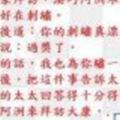 好在刺繡。
後道：你的刺繡真漂
說：過獎了。
的話，我也為你繡一
後，把這件事告訴太
的太太回答得十分得
阿洲來拜訪大康。